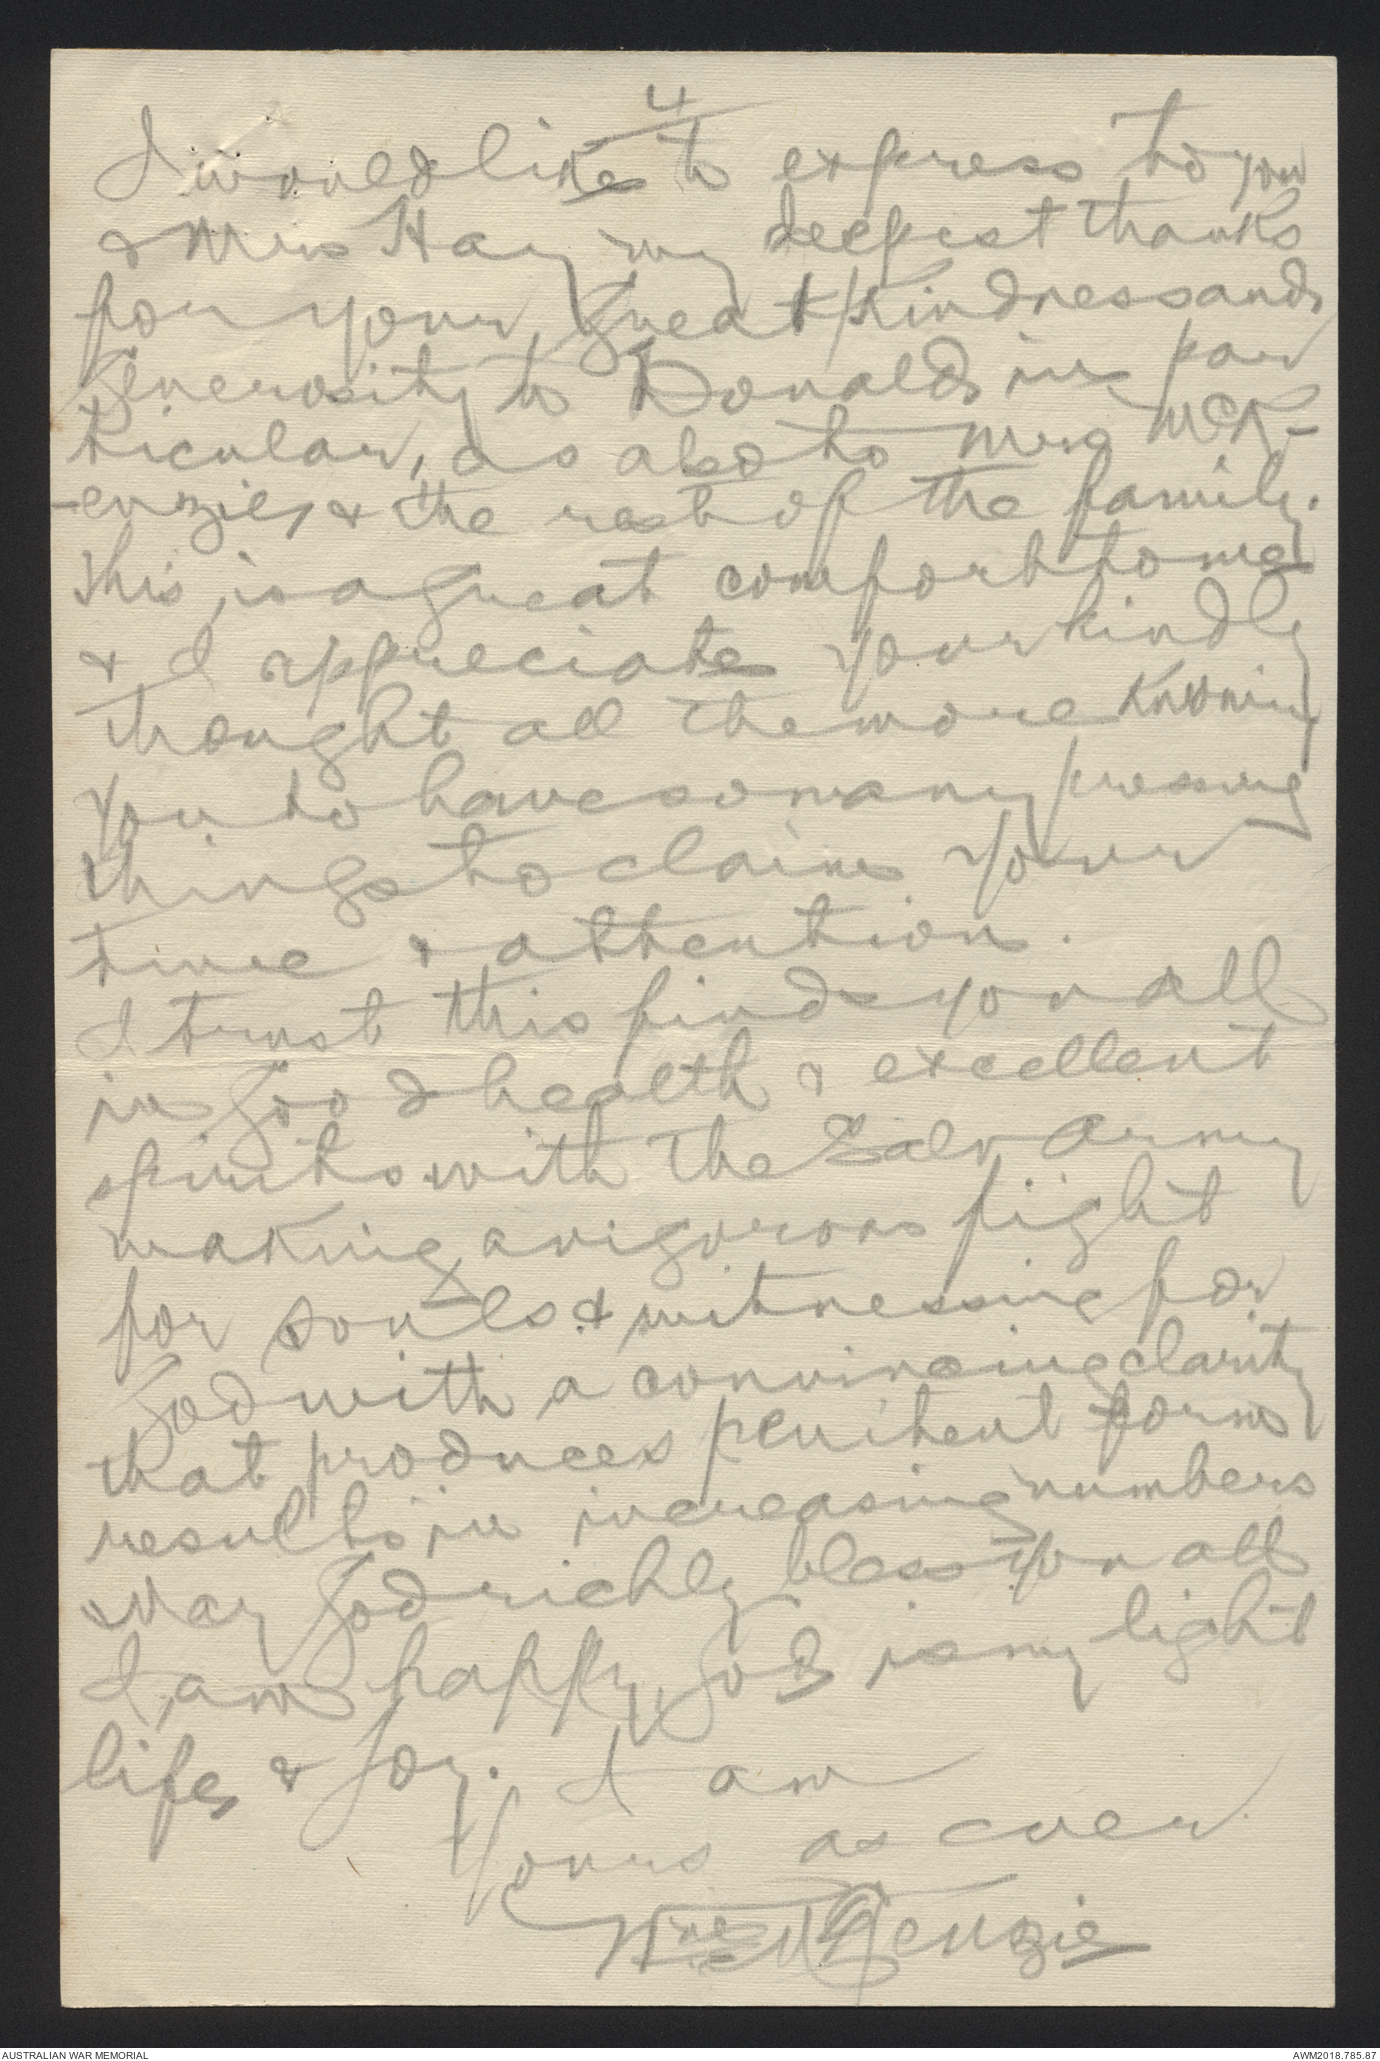 4
I would like to express to you
& Mrs Hay my deepest thanks
for your great kindness and
generosity to Donald in par
ticular, as also to Mrs McK-
-enzie, & the rest of the family.
This is a great comfort to me
& I appreciate your kindly
thought all the more knowing
you to have so many pressing
things to claim your
time & attention.
I trust this finds you all
in good health & excellent
spirits with the Salv Army
making a vigorous fight
for souls & witnessing for
God with a convincing clarity
that produces penitent form
results in increasing numbers
May God richly bless you all
I am happy, God is my light
life, & joy. I am
Yours as ever
Wm McKenzie
AUSTRALIAN WAR MEMORIAL
AWM2018.785.87